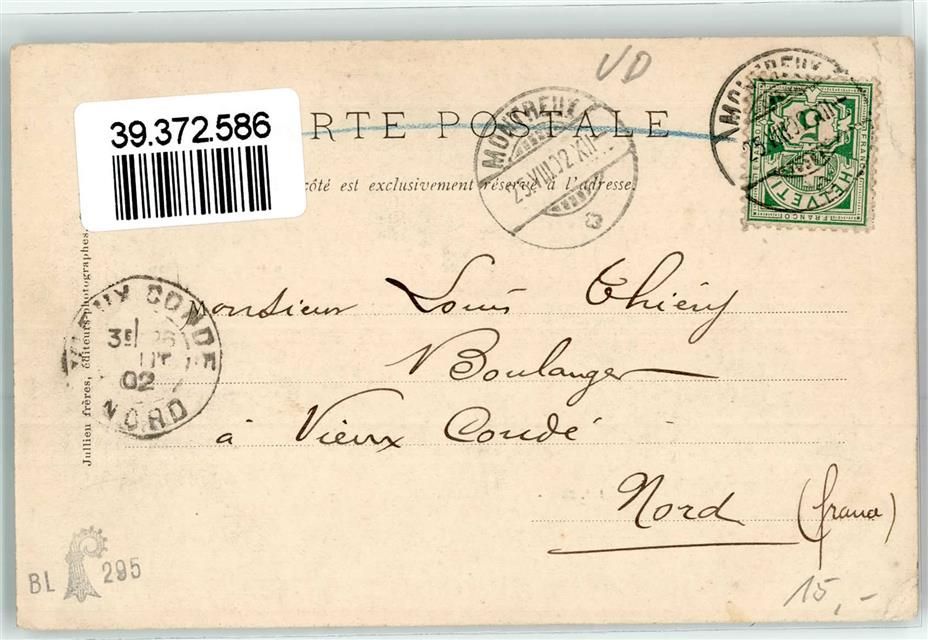 VD
39.372.586
RTE POSTALE
côté est exclusivement réservé à l'adresse.
MONTREUX
25.VIII.02.XII
MONTREUX
HELVETIA
FRANCO
5
Monsieur Louis Thiéry
Boulanger
à Vieux Condé
Nord (france)
VIEUX CONDE
02
NORD
Jullien frères, éditeurs-photographes,
BL 295
15,-